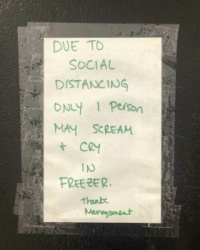 DUE TO
SOCIAL
DISTANCING
ONLY 1 Person
MAY SCREAM
+ CRY
IN
FREEZER.
Thanks
Management